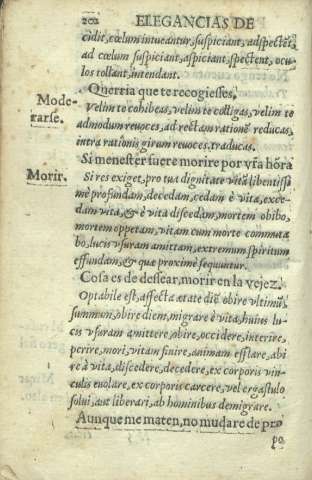 202 ELEGANCIAS DE
cidit, cœlum intueantur, suspiciant, adspectẽt,
ad cœlum suspiciant, aspiciant, spectent, ocu-
los tollant, intendant.
Querria que te recogiesses.
Mode-
rarse.
Velim te cohibeas, velim te colligas, velim te
admodum reuoces, ad rectam rationẽ reducas,
intra rationis girum reuoces, traducas.
Si menester fuere morire por vr̃a hõra
Morir.
Si res exiget, pro tua dignitate vitã libentissi
mè profundam, decedam, cedam è vita, exce-
dam vita, & è vita discedam, mortem obibo,
mortem oppetam, vitam cum morte commuta
bo, lucis vsuram amittam, extremum spiritum
effundam, & quæ proximè sequuntur.
Cosa es de dessear, morir en la vejez.
Optabile est, affecta ætate diẽ obire vltimũ,
summum, obire diem, migrare è vita, huius lu-
cis vsuram amittere, obire, occidere, interire,
perire, mori, vitam finire, animam efflare, abi
re à vita, discedere, decedere, ex corporis vin-
culis euolare, ex corporis carcere, vel ergastulo
solui, aut liberari, ab hominibus demigrare.
Aunque me maten, no mudare de pro
po